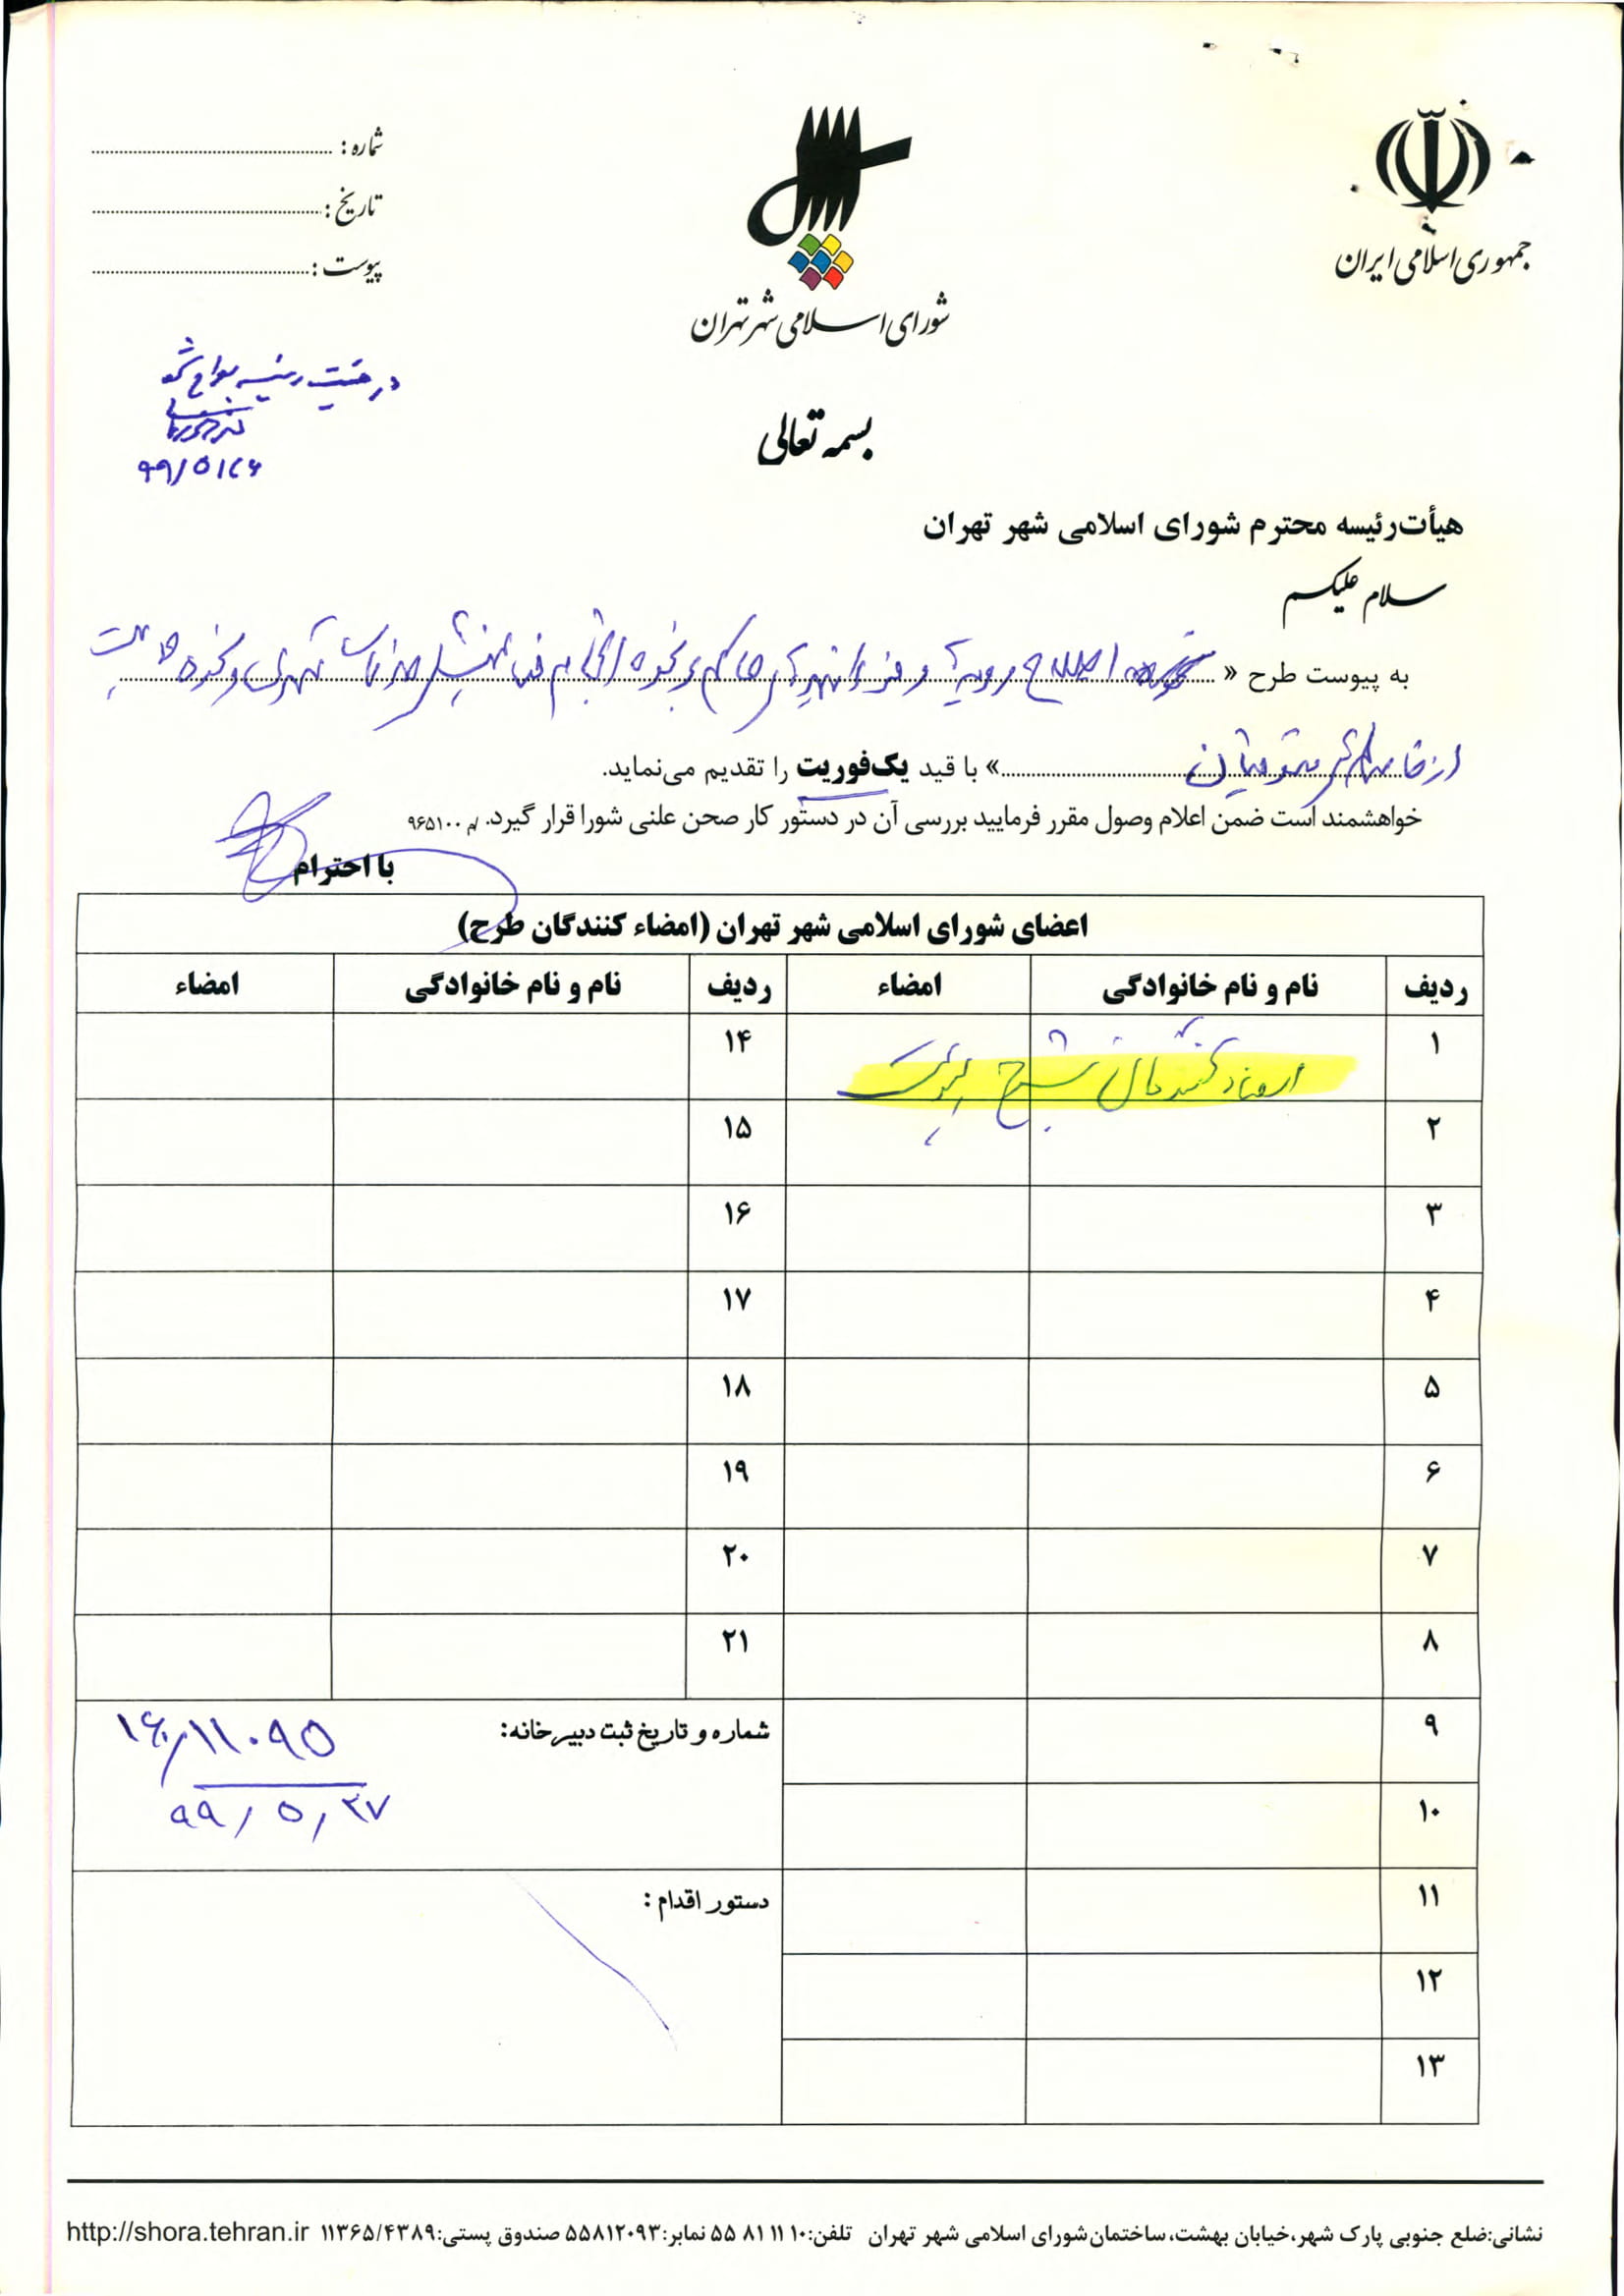 جمهوری اسلامی ایران
شورای اسلامی شهر تهران
شماره :
تاریخ :
پیوست :
در هیئت رئیسه مطرح شود
۹۹/۵/۲۶
بسمه تعالی
هیأت‌رئیسه محترم شورای اسلامی شهر تهران
سلام علیکم
به پیوست طرح « اصلاح رویه و فرآیندهای حاکم بر نحوه انجام فعالیت ... خدمات شهری و نحوه
از فضاهای » با قید یک‌فوریت را تقدیم می‌نماید.
خواهشمند است ضمن اعلام وصول مقرر فرمایید بررسی آن در دستور کار صحن علنی شورا قرار گیرد. م/ ۹۶۵۱۰۰
با احترام
اعضای شورای اسلامی شهر تهران (امضاء کنندگان طرح)
ردیف نام و نام خانوادگی امضاء ردیف نام و نام خانوادگی امضاء
۱ امضاء کنندگان بشرح پیوست ۱۴
۲ ۱۵
۳ ۱۶
۴ ۱۷
۵ ۱۸
۶ ۱۹
۷ ۲۰
۸ ۲۱
۹ شماره و تاریخ ثبت دبیرخانه: ۱۶۰/۱۱۰۹۵
۱۰ ۹۹/۵/۲۷
۱۱ دستور اقدام :
۱۲
۱۳
نشانی:ضلع جنوبی پارک شهر،خیابان بهشت، ساختمان شورای اسلامی شهر تهران تلفن:۱۰ ۱۱ ۸۱ ۵۵ نمابر:۵۵۸۱۲۰۹۳ صندوق پستی:۱۱۳۶۵/۴۳۸۹ http://shora.tehran.ir